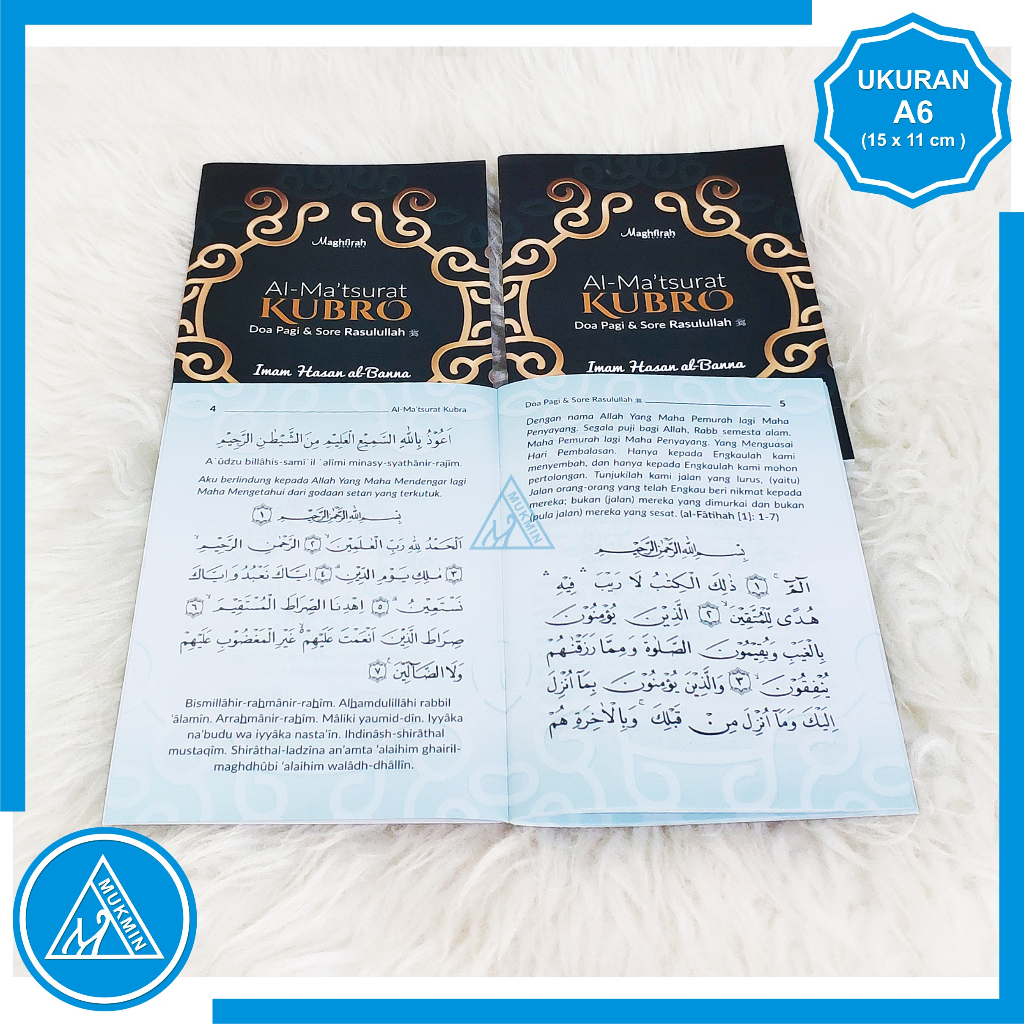 UKURAN
A6
(15 x 11 cm )
Maghfirah
Al-Ma'tsurat
KUBRO
Doa Pagi & Sore Rasulullah ﷺ
Imam Hasan al-Banna
Maghfirah
Al-Ma'tsurat
KUBRO
Doa Pagi & Sore Rasulullah ﷺ
Imam Hasan al-Banna
4 Al-Ma'tsurat Kubra
اَعُوْذُ بِاللّٰهِ السَّمِيْعِ الْعَلِيْمِ مِنَ الشَّيْطٰنِ الرَّجِيْمِ
A`ûdzu billâhis-samî`il `alîmi minasy-syathânir-rajîm.
Aku berlindung kepada Allah Yang Maha Mendengar lagi
Maha Mengetahui dari godaan setan yang terkutuk.
بِسْمِ اللّٰهِ الرَّحْمٰنِ الرَّحِيْمِ ۝١
اَلْحَمْدُ لِلّٰهِ رَبِّ الْعٰلَمِيْنَۙ ۝٢ الرَّحْمٰنِ الرَّحِيْمِۙ
۝٣ مٰلِكِ يَوْمِ الدِّيْنِۗ ۝٤ اِيَّاكَ نَعْبُدُ وَاِيَّاكَ
نَسْتَعِيْنُۗ ۝٥ اِهْدِنَا الصِّرَاطَ الْمُسْتَقِيْمَۙ ۝٦
صِرَاطَ الَّذِيْنَ اَنْعَمْتَ عَلَيْهِمْ ەۙ غَيْرِ الْمَغْضُوْبِ عَلَيْهِمْ
وَلَا الضَّاۤلِّيْنَ ۝٧
Bismillâhir-raḥmânir-raḥîm. Alḥamdulillâhi rabbil
'âlamîn. Arraḥmânir-raḥîm. Mâliki yaumid-dîn. Iyyâka
na'budu wa iyyâka nasta'în. Ihdinâsh-shirâthal
mustaqîm. Shirâthal-ladzîna an'amta 'alaihim ghairil-
maghdhûbi 'alaihim walâdh-dhâllîn.
Doa Pagi & Sore Rasulullah ﷺ 5
Dengan nama Allah Yang Maha Pemurah lagi Maha
Penyayang. Segala puji bagi Allah, Rabb semesta alam.
Maha Pemurah lagi Maha Penyayang. Yang Menguasai
Hari Pembalasan. Hanya kepada Engkaulah kami
menyembah, dan hanya kepada Engkaulah kami mohon
pertolongan. Tunjukilah kami jalan yang lurus, (yaitu)
Jalan orang-orang yang telah Engkau beri nikmat kepada
mereka; bukan (jalan) mereka yang dimurkai dan bukan
(pula jalan) mereka yang sesat. (al-Fâtihah [1]: 1-7)
بِسْمِ اللّٰهِ الرَّحْمٰنِ الرَّحِيْمِ
الۤمّۤ ۚ ۝١ ذٰلِكَ الْكِتٰبُ لَا رَيْبَ ۛ فِيْهِ ۛ
هُدًى لِّلْمُتَّقِيْنَۙ ۝٢ الَّذِيْنَ يُؤْمِنُوْنَ
بِالْغَيْبِ وَيُقِيْمُوْنَ الصَّلٰوةَ وَمِمَّا رَزَقْنٰهُمْ
يُنْفِقُوْنَۙ ۝٣ وَالَّذِيْنَ يُؤْمِنُوْنَ بِمَآ اُنْزِلَ
اِلَيْكَ وَمَآ اُنْزِلَ مِنْ قَبْلِكَۚ وَبِالْاٰخِرَةِ هُمْ
MUKMIN
MUKMIN